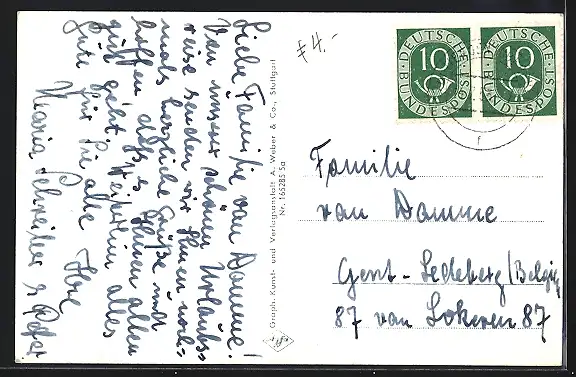 Liebe Familie van Damme!
Von unserer schönen Urlaubs-
reise senden wir Ihnen noch-
mals herzliche Grüße und
hoffen, dass es Ihnen allen
gut geht. Weiterhin alles
Gute für Sie alle Ihre
Maria Schreiber & Peter
Graph. Kunst- und Verlagsanstalt A. Weber & Co., Stuttgart
Nr. 165285 5a
£ 4.-
DEUTSCHE BUNDESPOST
10
DEUTSCHE BUNDESPOST
10
f
Familie
van Damme
Gent-Ledeberg/Belgig
87 van Lokeren 87